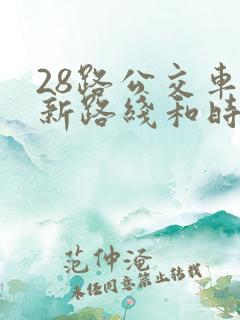 28路公交车
新路线和时
范仲淹
未经同意禁止转载